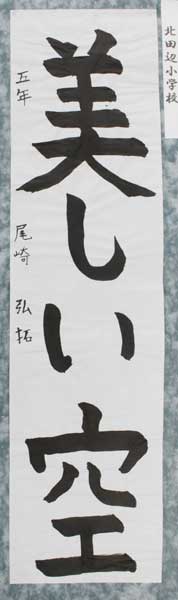 北田辺小学校
美しい空
五年 尾崎 弘拓